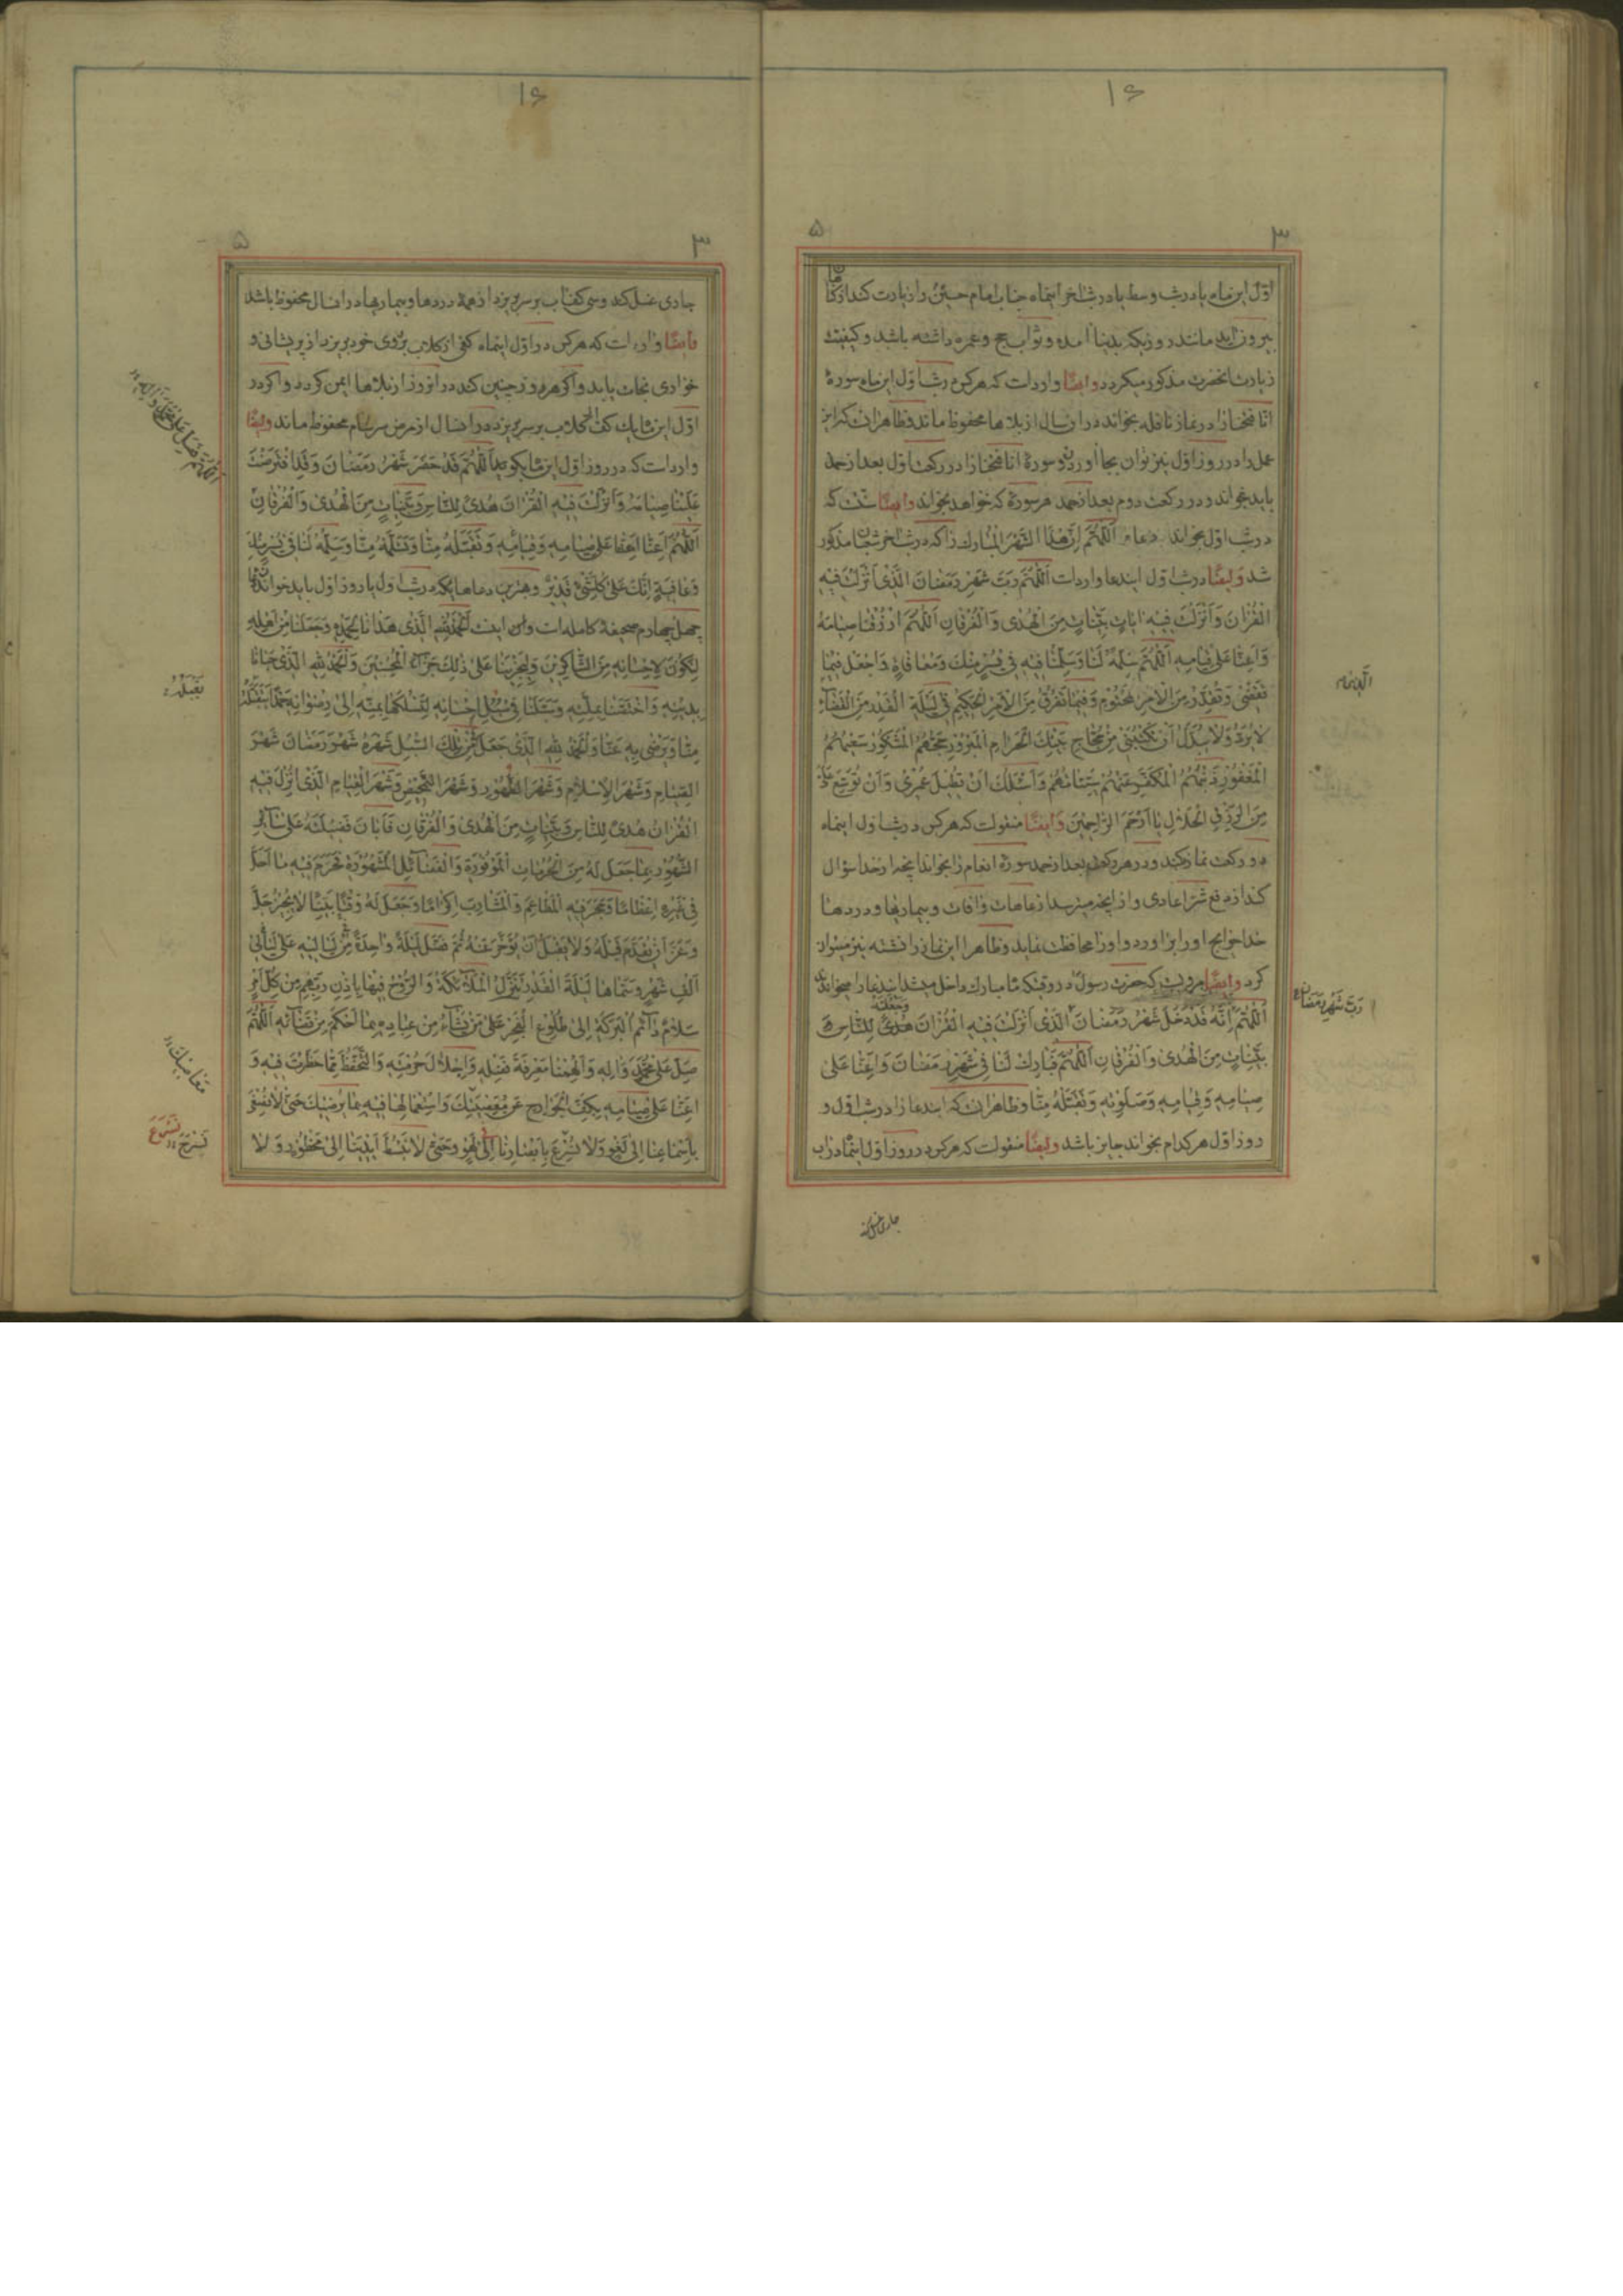 ۱۶
۳
۵
اوّل این ماه یا در شب وسط یا در شب آخر اینماه جناب امام حسین را زیارت کند از کناهان
بیرون آید مانند روزیکه بدنیا آمده و ثواب حج و عمره داشته باشد و کیفیت
زیارت انحضرت مذکور میکردد وایضًا وارد است که هر کس در شب اوّل این ماه سورهٔ
انا فتحنا را در نماز نافله بخواند در آن سال از بلاها محفوظ ماند و ظاهر آن که این
عمل را در روز اوّل نیز توان بجا آوردن و سورهٔ انا فتحنا را در رکعت اوّل بعد از حمد
باید خواند و در رکعت دوم بعد از حمد هر سورهٔ که خواهد بخواند وایضًا سنّت که
در شب اوّل بخواند دعاء اَللّٰهُمَّ اِنَّ هٰذَا الشَّهْرَ الْمُبارَك را که در شب آخر شعبان مذکور
شد وایضًا در شب اوّل ایندعا وارد است اَللّٰهُمَّ رَبَّ شَهْرِ رَمَضٰانَ الَّذي اَنْزَلْتَ فيهِ
الْقُرْانَ وَاَنْزَلْتَ فيهِ اٰياتٍ بَيِّناتٍ مِنَ الْهُدٰى وَالْفُرْقانِ اَللّٰهُمَّ ارْزُقْنا صِيامَهُ
وَاَعِنّا عَلٰى قِيامِهِ اَللّٰهُمَّ سَلِّمْهُ لَنا وَسَلِّمْنا فيهِ في يُسْرٍ مِنْكَ وَمُعافاةٍ وَاجْعَلْ فيما
تَقْضي وَتُقَدِّرُ مِنَ الْاَمْرِ الْمَحْتُومِ وَفيما تَفْرُقُ مِنَ الْاَمْرِ الْحَكيمِ في لَيْلَةِ الْقَدْرِ مِنَ الْقَضٰاءِ
لا يُرَدُّ وَلا يُبَدَّلُ اَنْ تَكْتُبَني مِنْ حُجّاجِ بَيْتِكَ الْحَرامِ الْمَبْرُورِ حَجُّهُمُ الْمَشْكُورِ سَعْيُهُمُ
الْمَغْفُورِ ذَنْبُهُمُ الْمُكَفَّرِ عَنْهُمْ سَيِّئاتُهُمْ وَاَسْئَلُكَ اَنْ تُطيلَ عُمْري وَاَنْ تُوَسِّعَ عَلَيَّ
مِنَ الرِّزْقِ الْحَلالِ يا اَرْحَمَ الرّاحِمينَ وایضًا منقولست که هر کس در شب اوّل اینماه
دو رکعت نماز کند و در هر رکعتی بعد از حمد سورهٔ انعام را بخواند آنچه از خدا سؤال
کند از دفع شرّ اعادی و از آنچه میترسد از عاهات و آفات و بیماریها و دردها
خدا حوایج او را بر آورد و او را محافظت نماید و ظاهرا این نماز را نشسته نیز میتوان
کرد وایضًا مرویست که حضرت رسول در وقتیکه ماه مبارک داخل میشد ایندعا را میخواندند
وَجَعَلْتَهُ
اَللّٰهُمَّ اِنَّهُ قَدْ دَخَلَ شَهْرُ رَمَضٰانَ الَّذي اَنْزَلْتَ فيهِ الْقُرْانَ هُدىً لِلنّاسِ وَ
بَيِّناتٍ مِنَ الْهُدٰى وَالْفُرْقانِ اَللّٰهُمَّ فَبارِكْ لَنا في شَهْرِ رَمَضٰانَ وَاَعِنّا عَلٰى
صِيامِهِ وَقِيامِهِ وَصَلَوٰتِهِ وَتَقَبَّلْهُ مِنّا و ظاهر آن که ایندعا را در شب اوّل و
روز اوّل هر کدام بخواند جایز باشد وایضًا منقولست که هر کس در روز اوّل اینماه در آب
رَبَّ شَهْرِ رَمَضٰانَ
جاری غسل کند
۱۶
۳
۵
جاری غسل کند و سی کف آب بر سر بریزد از همهٔ دردها و بیماریها در آنسال محفوظ باشد
وایضًا وارد است که هر کس در اوّل اینماه کفی از گلاب بر روی خود بریزد از پریشانی و
خواری نجات یابد و اگر هر روز چنین کند در آنروز از بلاها ایمن کردد و اگر در
اوّل این ماه یك کف گلاب بر سر بریزد در آنسال از مرض سرسام محفوظ ماند وایضًا
وارد است که در روز اوّل این ماه بگوید اَللّٰهُمَّ قَدْ حَضَرَ شَهْرُ رَمَضٰانَ وَقَدِ افْتَرَضْتَ
عَلَيْنا صِيامَهُ وَاَنْزَلْتَ فيهِ الْقُرْانَ هُدىً لِلنّاسِ وَبَيِّناتٍ مِنَ الْهُدٰى وَالْفُرْقانِ
اَللّٰهُمَّ اَعِنّا عَلٰى صِيامِهِ وَقِيامِهِ وَتَقَبَّلْهُ مِنّا وَتَسَلَّمْهُ مِنّا وَسَلِّمْهُ لَنا في يُسْرٍ مِنْكَ
وَعافِيَةٍ اِنَّكَ عَلٰى كُلِّ شَيْءٍ قَديرٌ و بهترین دعاها یکه در شب اوّل یا روز اوّل باید خواند دعای
چهل چهارم صحیفهٔ کامله است و آن اینست اَلْحَمْدُ لِلّٰهِ الَّذي هَدٰانا لِحَمْدِهِ وَجَعَلَنا مِنْ اَهْلِهِ
لِنَكُونَ لِاِحْسانِهِ مِنَ الشّاكِرينَ وَلِيَجْزِيَنا عَلٰى ذٰلِكَ جَزٰاءَ الْمُحْسِنينَ وَالْحَمْدُ لِلّٰهِ الَّذي حَبانا
بِدينِهِ وَاخْتَصَّنا بِمِلَّتِهِ وَسَبَّلَنا في سُبُلِ اِحْسانِهِ لِنَسْلُكَها بِمَنِّهِ اِلٰى رِضْوانِهِ حَمْدًا يَتَقَبَّلُهُ
مِنّا وَيَرْضٰى بِهِ عَنّا وَالْحَمْدُ لِلّٰهِ الَّذي جَعَلَ مِنْ تِلْكَ السُّبُلِ شَهْرَهُ شَهْرَ رَمَضانَ شَهْرَ
الصِّيامِ وَشَهْرَ الْاِسْلامِ وَشَهْرَ الطَّهُورِ وَشَهْرَ التَّمْحيصِ وَشَهْرَ الْقِيامِ الَّذي اُنْزِلَ فيهِ
الْقُرْانُ هُدىً لِلنّاسِ وَبَيِّناتٍ مِنَ الْهُدٰى وَالْفُرْقانِ فَاَبانَ فَضيلَتَهُ عَلٰى سٰائِرِ
الشُّهُورِ بِما جَعَلَ لَهُ مِنَ الْحُرُماتِ الْمَوْفُورَةِ وَالْفَضٰائِلِ الْمَشْهُورَةِ فَحَرَّمَ فيهِ ما اَحَلَّ
في غَيْرِهِ اِعْظامًا وَحَجَرَ فيهِ الْمَطاعِمَ وَالْمَشارِبَ اِكْرامًا وَجَعَلَ لَهُ وَقْتًا بَيِّنًا لا يُجيزُ جَلَّ
وَعَزَّ اَنْ يُقَدَّمَ قَبْلَهُ وَلا يَقْبَلُ اَنْ يُؤَخَّرَ عَنْهُ ثُمَّ فَضَّلَ لَيْلَةً واحِدَةً مِنْ لَياليهِ عَلٰى لَيالي
اَلْفِ شَهْرٍ وَسَمّاها لَيْلَةَ الْقَدْرِ تَنَزَّلُ الْمَلٰئِكَةُ وَالرُّوحُ فيها بِاِذْنِ رَبِّهِمْ مِنْ كُلِّ اَمْرٍ
سَلامٌ دٰائِمُ الْبَرَكَةِ اِلٰى طُلُوعِ الْفَجْرِ عَلٰى مَنْ يَشٰاءُ مِنْ عِبادِهِ بِما اَحْكَمَ مِنْ قَضٰائِهِ اَللّٰهُمَّ
صَلِّ عَلٰى مُحَمَّدٍ وَاٰلِهِ وَاَلْهِمْنا مَعْرِفَةَ فَضْلِهِ وَاِجْلالَ حُرْمَتِهِ وَالتَّحَفُّظَ مِمّا حَظَرْتَ فيهِ وَ
اَعِنّا عَلٰى صِيامِهِ بِكَفِّ الْجَوارِحِ عَنْ مَعْصِيَتِكَ وَاسْتِعْمالِها فيهِ بِما يُرْضيكَ حَتّٰى لا نُصْغِيَ
بِاَسْماعِنا اِلٰى لَغْوٍ وَلا نُسْرِعَ بِاَبْصارِنا اِلٰى لَهْوٍ وَحَتّٰى لا نَبْسُطَ اَيْدِيَنا اِلٰى مَحْظُورٍ وَلا
اَللّٰهُمَّ صَلِّ عَلٰى مُحَمَّدٍ وَاٰلِهِ
مَعاصيكَ
نَسْرَحَ